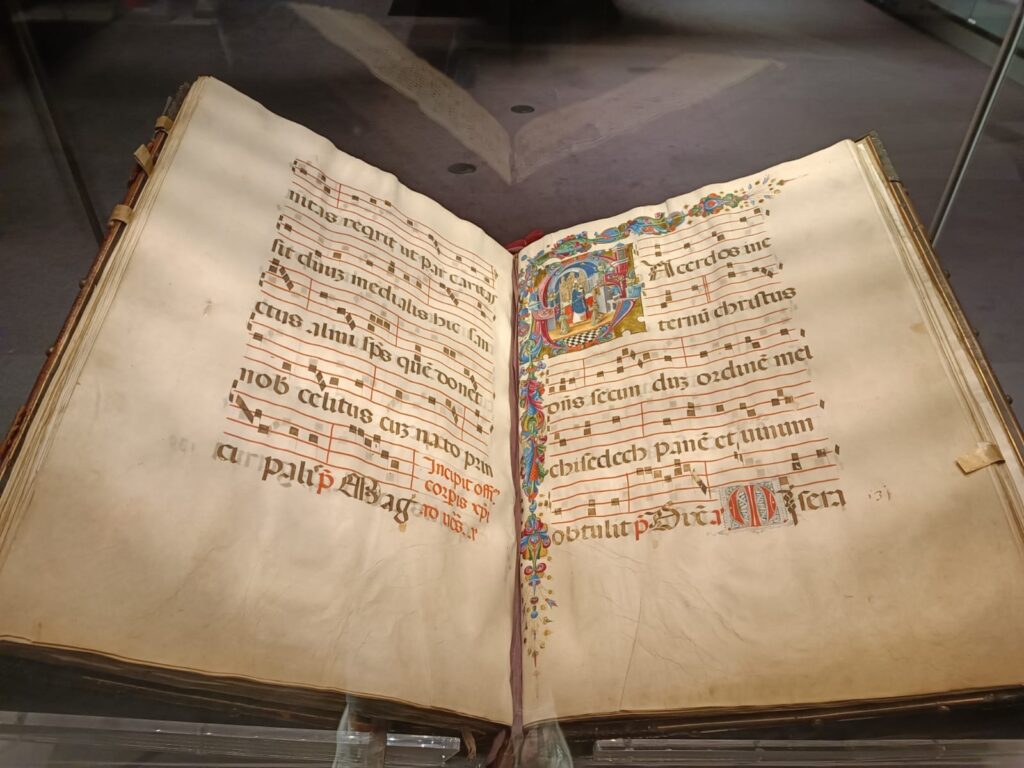 nitas regnit ut par caritas
sit cuius medialis hic san
ctus almi sps que donet
nob celitus cuz nato pan
cu pali p Mag
Incipit offi
corpis xpi
ad
Sacerdos in e
ternu christus
oñs secun duz ordinē mel
chisedech panē et uinum
obtulit p Dixit Misera
131